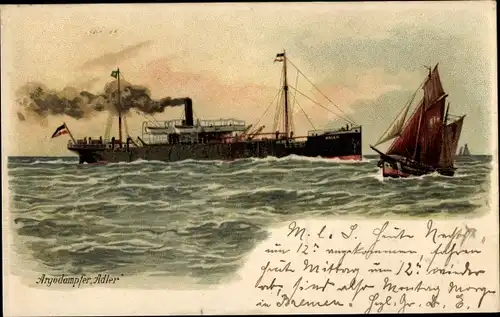 ADLER
"Argodampfer Adler"
M. l. J. Heute Nachts
um 12h angekommen fahren
heute Mittag um 12h wieder
ab, sind also Montag Morgen
in Bremen. Hzl. Gr. D. E.